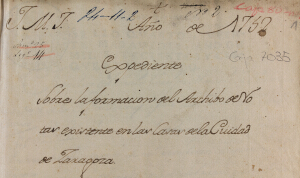 J. M. J. 24-11-2 Año de 1757
Caja 7035
Expediente
Sobre la formacion del Archibo de No
tas, existente en las Casas de la Ciudad
de Zaragoza.